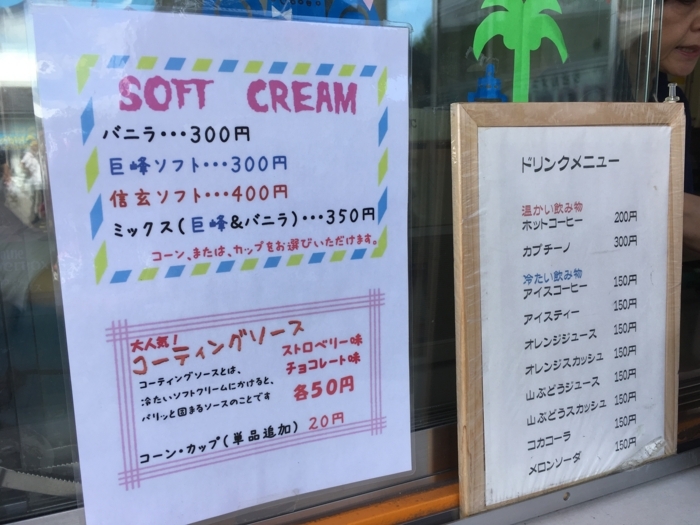 SOFT CREAM
バニラ・・・300円
巨峰ソフト・・・300円
信玄ソフト・・・400円
ミックス(巨峰&バニラ)・・・350円
コーン、または、カップをお選びいただけます。
大人気!
コーティングソース
コーティングソースとは、
冷たいソフトクリームにかけると、
パリッと固まるソースのことです
ストロベリー味
チョコレート味
各50円
コーン・カップ(単品追加) 20円
ドリンクメニュー
温かい飲み物
ホットコーヒー 200円
カプチーノ 300円
冷たい飲み物
アイスコーヒー 150円
アイスティー 150円
オレンジジュース 150円
オレンジスカッシュ 150円
山ぶどうジュース 150円
山ぶどうスカッシュ 150円
コカコーラ 150円
メロンソーダ 150円